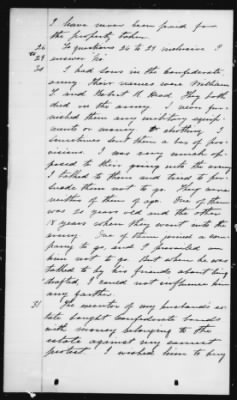 I have never been paid for
the property taken.
26 To questions 26 to 29 inclusive I
to
29 answer "No"
30 I had sons in the Confederate
army Their names were William
T and Robert R. They both
died in the army. I never fur-
nished them any military equip-
ments or money or clothing. I
sometimes sent them a box of pro-
visions. I was very much op-
posed to their going into the army
I talked to them and tried to per-
suade them not to go. They were
neither of them of age. One of them
was 20 years old and the other
18 years when they went into the
army. One of them joined a com-
pany to go, and I prevailed on
him not to go. But when he was
talked to by his friends about being
drafted, I could not influence him
any farther.
31 The executor of my husbands es-
tate bought Confederate bonds
with money belonging to the
estate against my earnest
protest. I wished him to buy